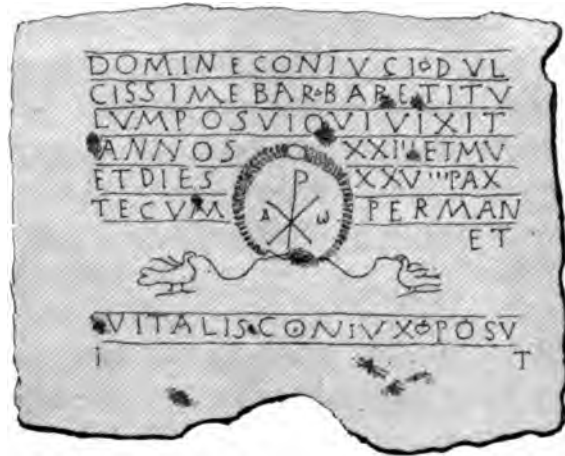 DOMINECONIVCI∘DVL
CISSIMEBAR∘BARETITV
LVMPOSVIQVIVIXIT
ANNOS XXI'' ETMV
ETDIES XXV'''PAX
TECVM PERMAN
ET
Α ☧ ω
VITALISCONIVX∘POSV
I T